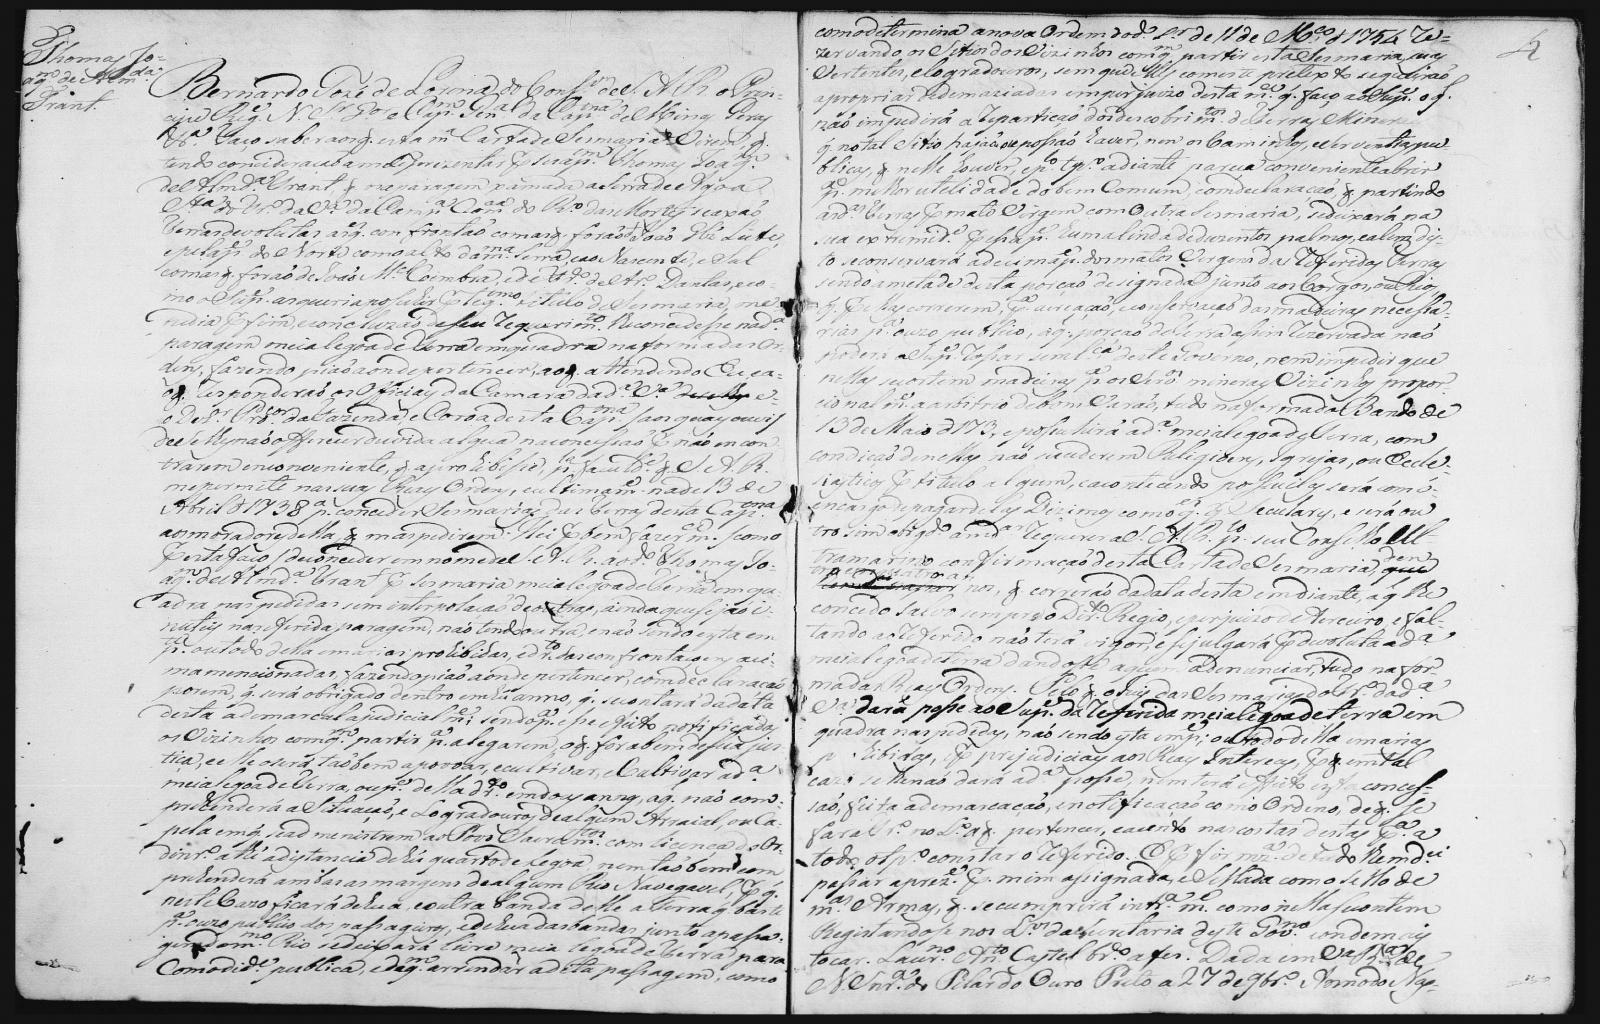 Thomas Jo-
aq.m de Alm.da
Brant.
Bernardo Joze de Lorena, do Cons.o de S. A. R. o Prin-
cipe Reg.e N. Sr. Gov.or e Cap.m Gen.al da Cap.nia de Minas Geraes
&.a Faço saber aos q. esta m.a Carta de Sesmaria virem, q.
tendo consideração a me reprezentar por sua p.am Thomas Joaq.m
de Alm.da Brant, q. na paragem xamada a Serra de
do Tr.o da V.a da Camp.a Com.ca do Rio das Mortes se axão
terras devolutas as q. confrontão com as q. forão de João
e pela p.te do Norte com o alto da m.ma Serra, e ao Nascente, e Sul
com as q. forão de João M.el Coimbra, e de Ant.o Dantas, e co-
mo o Sup.e as queria possuir por legitimo titulo de Sesmaria, me
pedia por fim, e concluzão de seu requerim.to lhe concedesse na d.a
paragem meia legoa de terra em quadra na forma das Or-
dens, fazendo pião aonde pertencer, ao q. attendendo Eu, e ao
q. responderão os Officiaes da Camara da d.a V.a e
o D.or Proc.or da Fazenda, e Coroa desta Cap.nia aos quaes ouvi,
de se lhe não offerecer duvida alguma na concessão por não encon-
trarem inconveniente, q. a prohibisse, p.la faculd.e q. S. A. R.
me permite nas suas Reaes Ordens, e ultimam.te na de 13 de
Abril de 1738 p.a conceder Sesmarias das terras desta Cap.nia
aos moradores della, q. mas pedirem: Hei por bem fazer m.ce (como
por esta faço) de conceder em nome de S. A. R. ao d.o Thomas Jo-
aq.m de Alm.da Brant por Sesmaria meia legoa de terra em qua-
dra nas pedidas sem interpolação de outras, ainda que sejão i-
nuteis na referida paragem, não tendo outra, e não sendo esta em
p.te, ou todo della em areas prohibidas, e dr.o das confrontaçoens aci-
ma mencionadas, fazendo pião aonde pertencer, com declaração
porem, q. será obrigado dentro em hu anno, q. se contará da data
desta a demarcala judicialm.te, sendo p.a esse effeito notificados
os Vizinhos com q.m partir p.a alegarem, o q. for a bem de sua jus-
tiça, e elle o será tãobem a povoar, e cultivar, e Cultivar a d.a
meia legoa de terra, ou p.te della dr.o em dous annos, a q. não com-
prehenderá a Situação, e Logradouros, de algum Arraial, ou Ca-
pela em q. se administrem ao Povo Sacram.tos com licença do Or-
dinr.o até a distancia de hu quarto de Legoa nem tãobem com-
prehenderá ambas as margens de algum Rio Navegavel, por q.
neste Cazo ficará de hua, e outra banda delle a terra q. baste
p.a o uzo publico dos passageiros, e de hua das bandas junto a passa-
gem do m.mo Rio se deixará livre meia legoa de terra para
Comodid.e publica, e de q.m arrendar a dita passagem, como
como determina a nova Ordem do d.o Sr. de 11 de M.co d 1754 Re-
zervando os Sitios dos Vizinhos com q.m partir esta Sesmaria, suas
Vertentes, e logradouros, sem que elles com este pretexto se queirão
apropriar de demaziadas em prejuizo desta m.ce q. faço ao Sup.e o q.
não impedirá a repartição dos descobrim.tos de terras Mineraes
q. no tal Sitio hajão, ou possão haver, nem os Caminhos, e serventias pu-
blicas, q. nelle houver, e p.lo tp.o adiante pareça conveniente abrir
p.a melhor utilidade do bem Comum, com declaração q. partindo
as d.as terras por mato Virgem com Outra Sesmaria, se deixará na
sua extremid.e por essa p.te hua linha de duzentos palmos, e alem dis-
to se conservará a decima p.te dos matos Virgens das referidas terras
sendo a metade desta porção designada junto aos Corgos, ou Rios
q. por elas correrem, por creação, e conservação das madeiras necessa-
rias p.a o uzo publico, a q. porção de terra assim rezervada não
poderá o Sup.e rossar sem lc.a deste Governo, nem impedir que
nellas se cortem madeiras p.a os Serv.os mineraes Vizinhos propor-
cionalm.te a arbitrio de bom Varão, tudo na forma do Bando de
13 de Maio d 173, e possuhirá a d.a meia legoa de terra, com
condição de nellas não sucederem Religioens, Igrejas, ou Eccle-
siasticos por titulo algum, e acontecendo possuilas será com o
encargo de pagar dellas Dizimos como q.e q.r Seculares, e será ou
tro sim obrg.do a mandar requerer a S. A. R. p.lo seu Conselho Ul-
tramarino confirmação desta Carta de Sesmaria den
tro em quatro an-
nos, q. correrão da data desta em diante, a q. lhe
concedo salvo sempre o Dr.to Regio, e prejuizo de terceiro, e fal-
tando ao referido não terá vigor, e se julgará por devoluta a d.a
meia legoa de terra dando-se a quem a denunciar, tudo na for-
ma das Reaes Ordens. Pelo q. o Juiz das Sesmarias do Tr.o da d.a
V.a dará posse ao Sup.e da referida meia legoa de terra em
quadra nas pedidas, não sendo esta em p.te, ou todo della em areas
prohibidas, e prejudiciaes aos Reaes Interesses, por q. em tal
cazo se lhe não dará a d.a posse, nem terá effeito esta conces-
são, feita a demarcação, e notificação como Ordeno, de q. se
fara Tr.o no L.o a q. pertencer, e acento nas costas desta p.a a
todo o tp.o constar o referido. E por firmeza de tudo lhe mandei
passar a prez.te por mim assignada, e Sellada com o Sello de
m.as Armas, q. se cumprirá intr.am.te como nella se contem
Registandose nos L.os da Secretaria deste Gov.no e onde mais
tocar. Laur.no Ant.o Castel br.co a fes. Dada em V.a R.ca de
N. Snr.a do Pilar do Ouro Preto a 27 de 9br.o Anno do Nas-